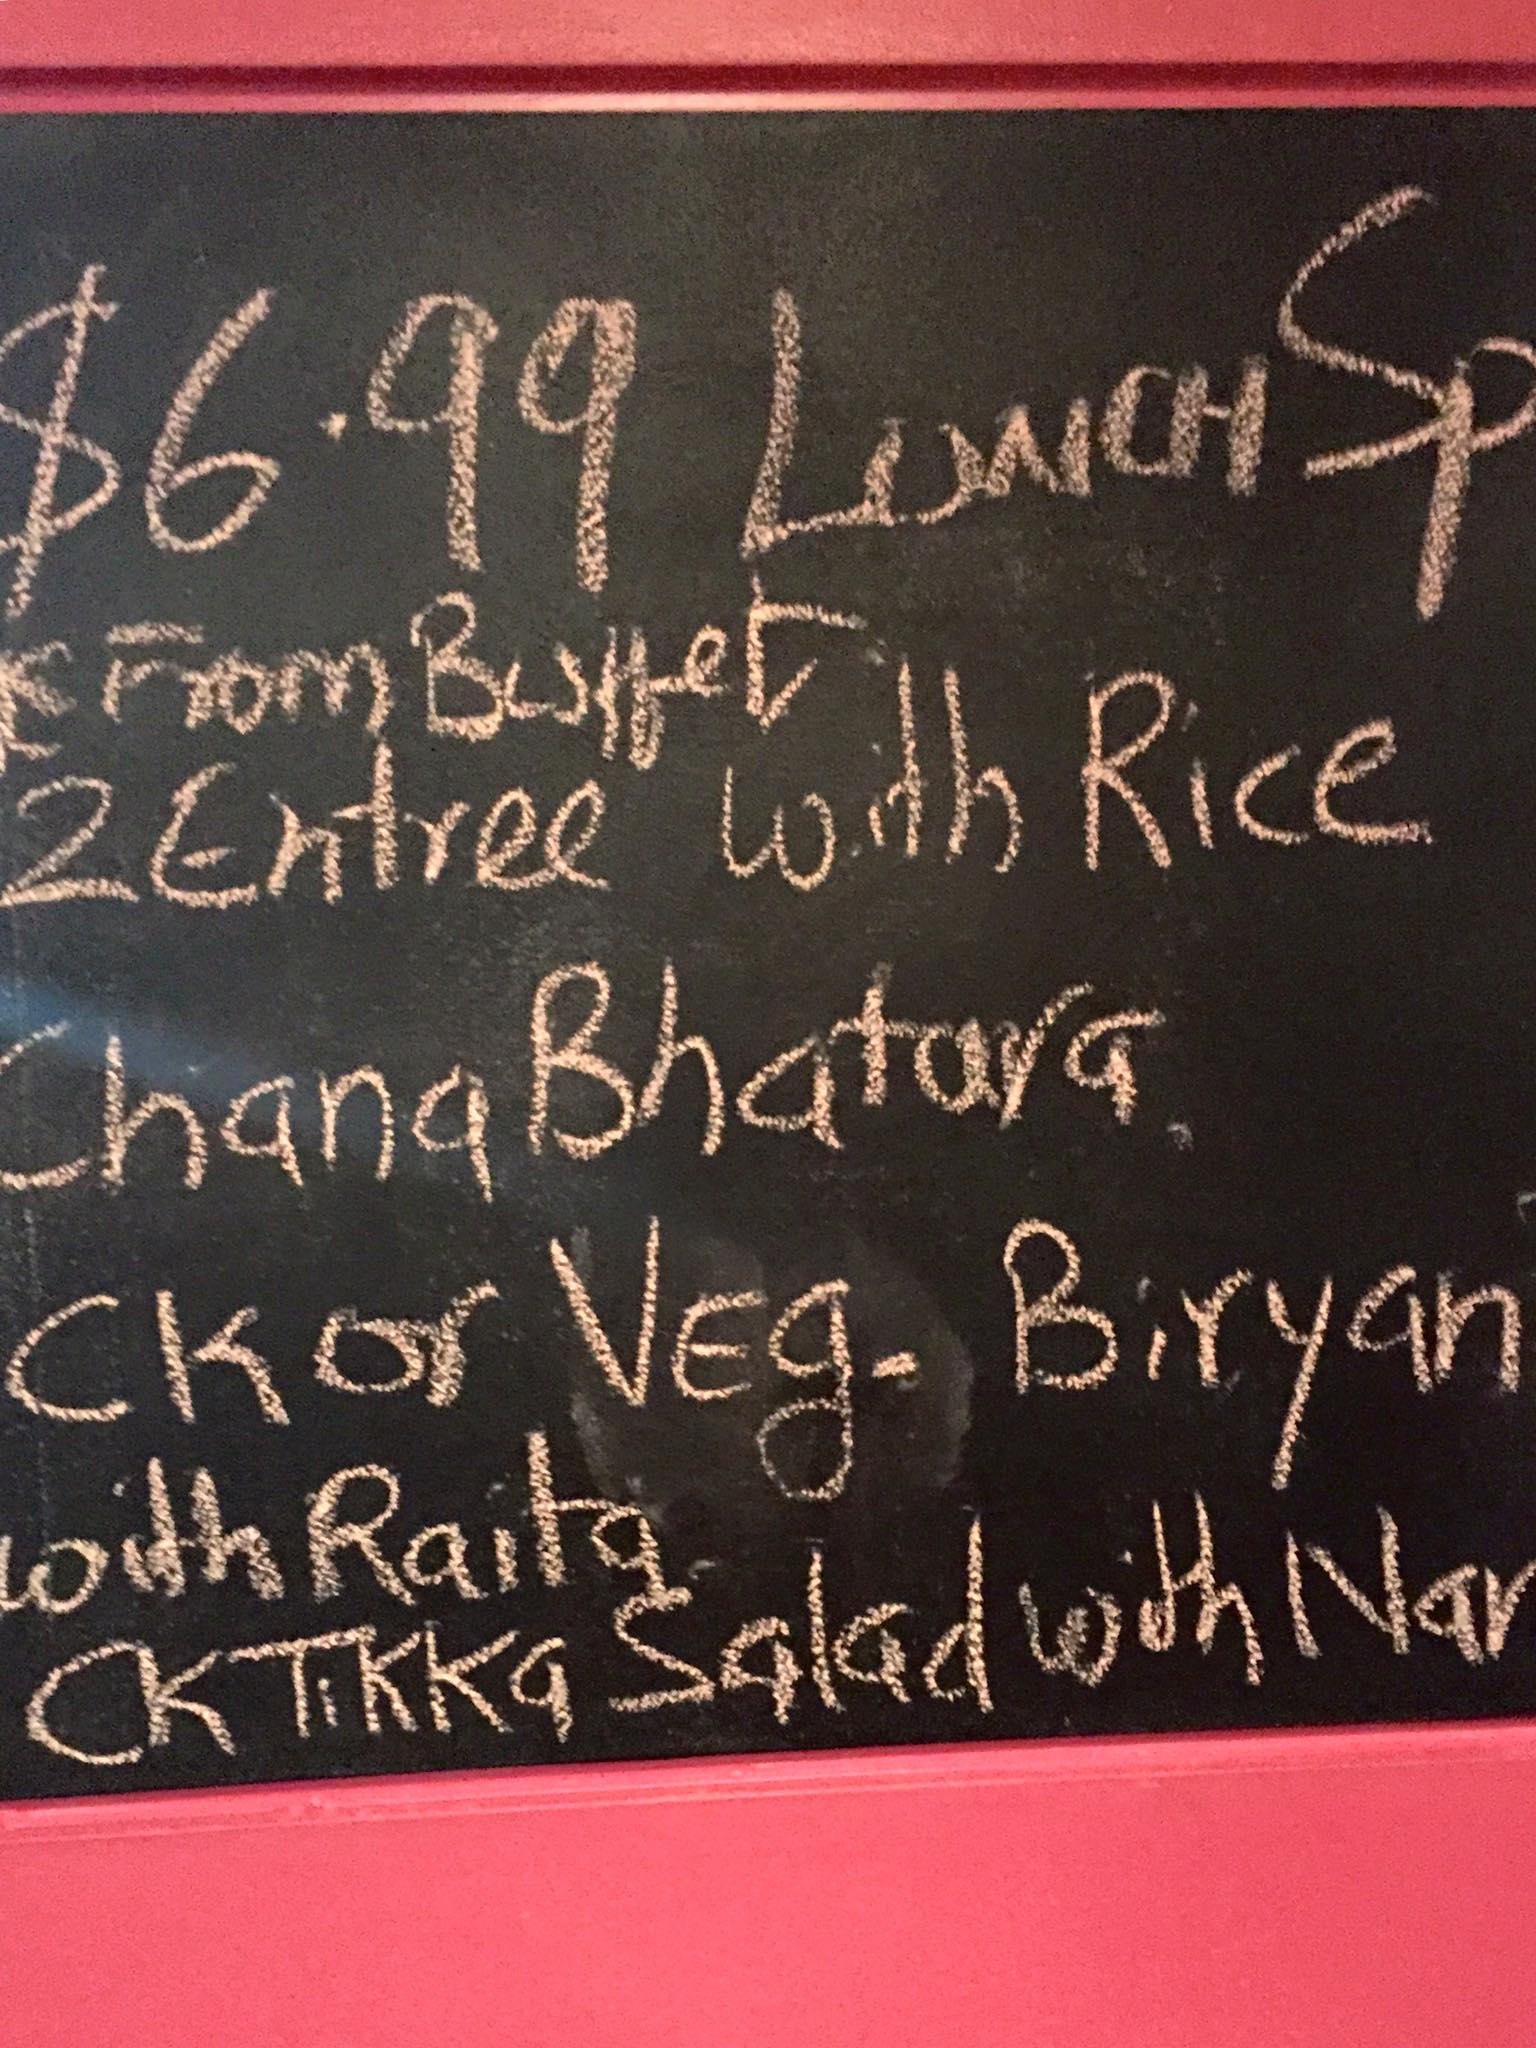 $6.99 Lunch Sp
* From Buffet
2 Entree with Rice
Chana Bhatura
CK or Veg. Biryan
with Raita
CK Tikka Salad with Nan